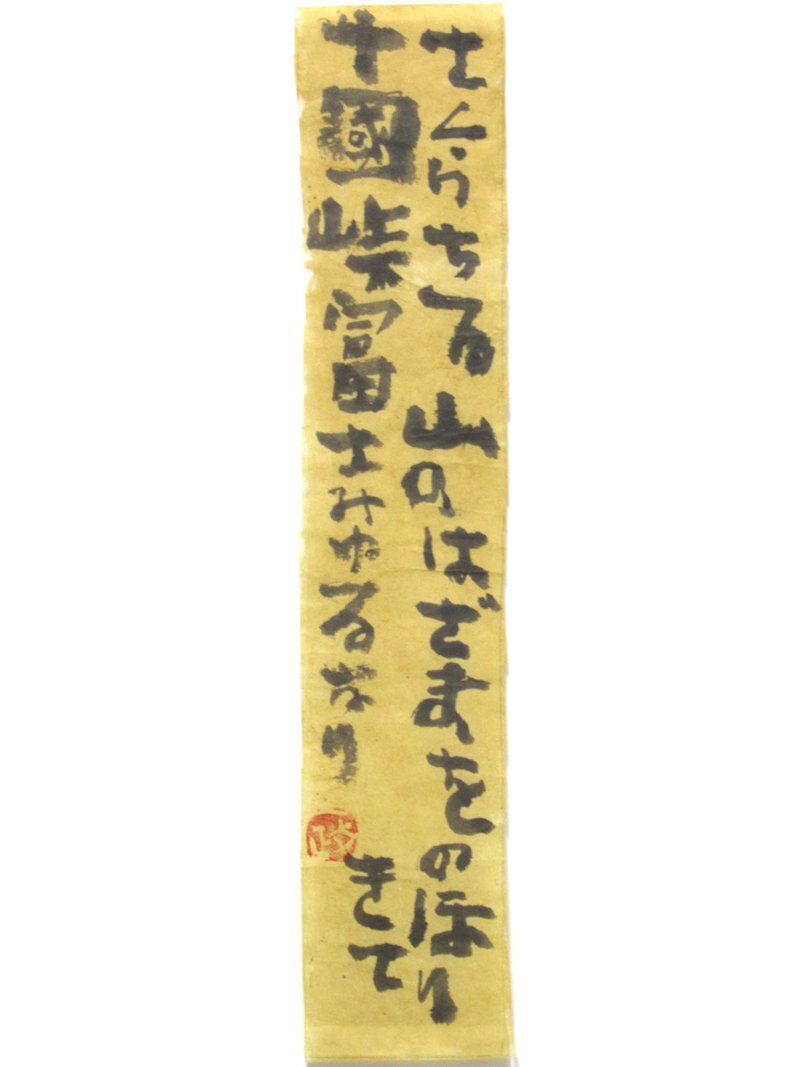 さくらちる山のはざまをのほり
きて
十國峠富士みゆるなり
政